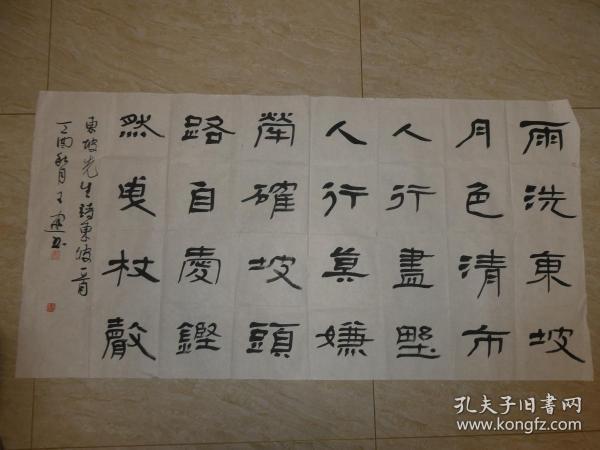 雨洗東坡
月色清市
人行盡野
人行莫嫌
犖確坡頭
路自愛鏗
然曳杖聲
東坡先生詩東坡一首
丁酉秋月王书
孔夫子旧書网
www.kongfz.com